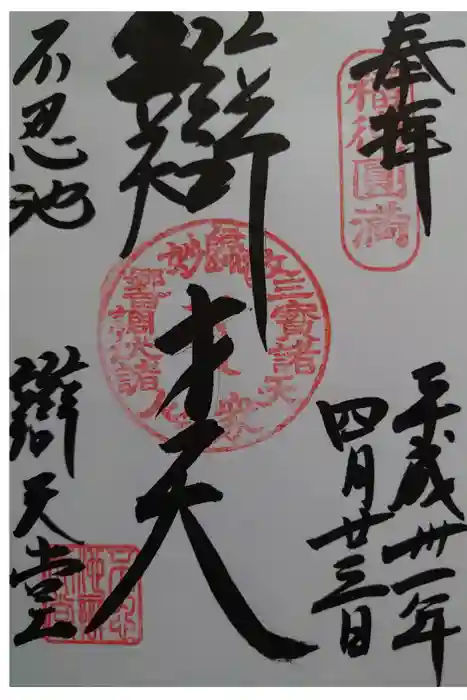 奉拝
福徳圓満
平成卅一年
四月廿三日
辯才天
三寳諸天
不忍池
辯天堂